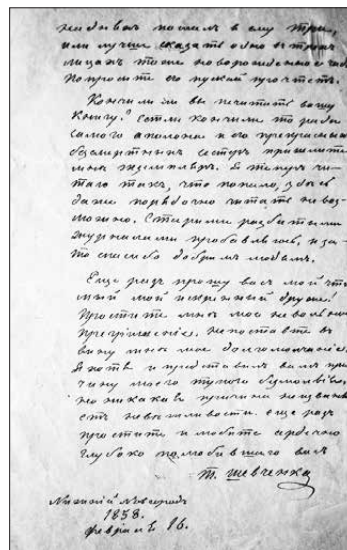 или лучше сказать одно въ трехъ
лицахъ тоже новорожденное чадо.
Попросите его пускай прочтетъ.
Кончили ли вы печатать вашу
Книгу? Если кончили то ради
самого аполона и его прекрасныхъ
безсмертныхъ сестеръ пришлите
мнѣ экземпляръ. Я теперь чи-
таю такъ, что попало, здѣсь
даже порядочно читать невоз-
можно. Старыми разбитыми
журналами пробавляюсь, и за
то спасибо добрымъ людямъ.
Еще разъ прошу васъ мой чти-
мый мой искренный друже!
Простите мнѣ мое невольное
прегрѣшеніе, не поставте въ
вину мнѣ мое долгомолчаніе.
Я хотя и представилъ вамъ при-
чину моего тупого безмолвія,
но никакая причина не извиня-
етъ невѣжливости. еще разъ
простите и любите сердечно
глубоко полюбившаго васъ
Т. Шевченка
Нижній Новгородъ
1858.
февраля 16.